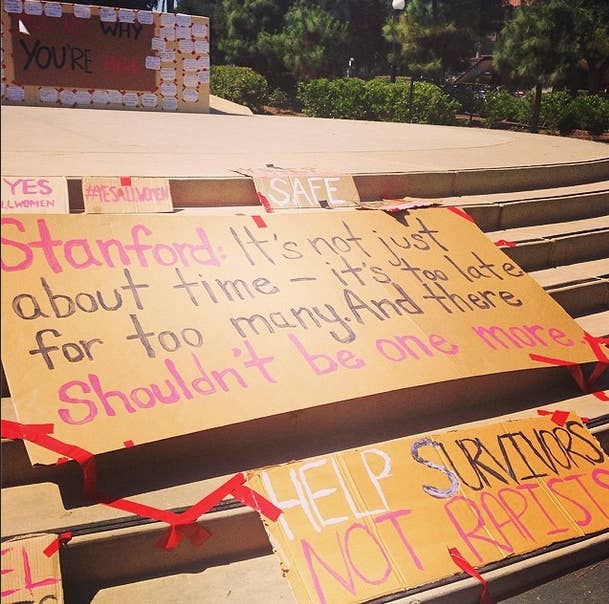 WHY
YOU'RE
YES
LLWOMEN
#YESALLWOMEN
SAFE
Stanford: It's not just
about time - it's too late
for too many. And there
Shouldn't be one more.
HELP SURVIVORS
NOT RAPISTS
EL